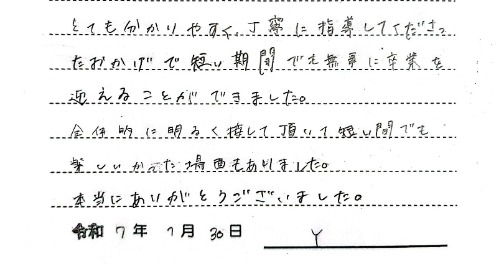 とても分かりやすく、丁寧に指導してくださっ
たおかげで短い期間でも無事に卒業を
迎えることができました。
全体的に明るく接して頂いて短い間でも
楽しいかった場面もありました。
本当にありがとうございました。
令和 7 年 7 月 30 日 Y